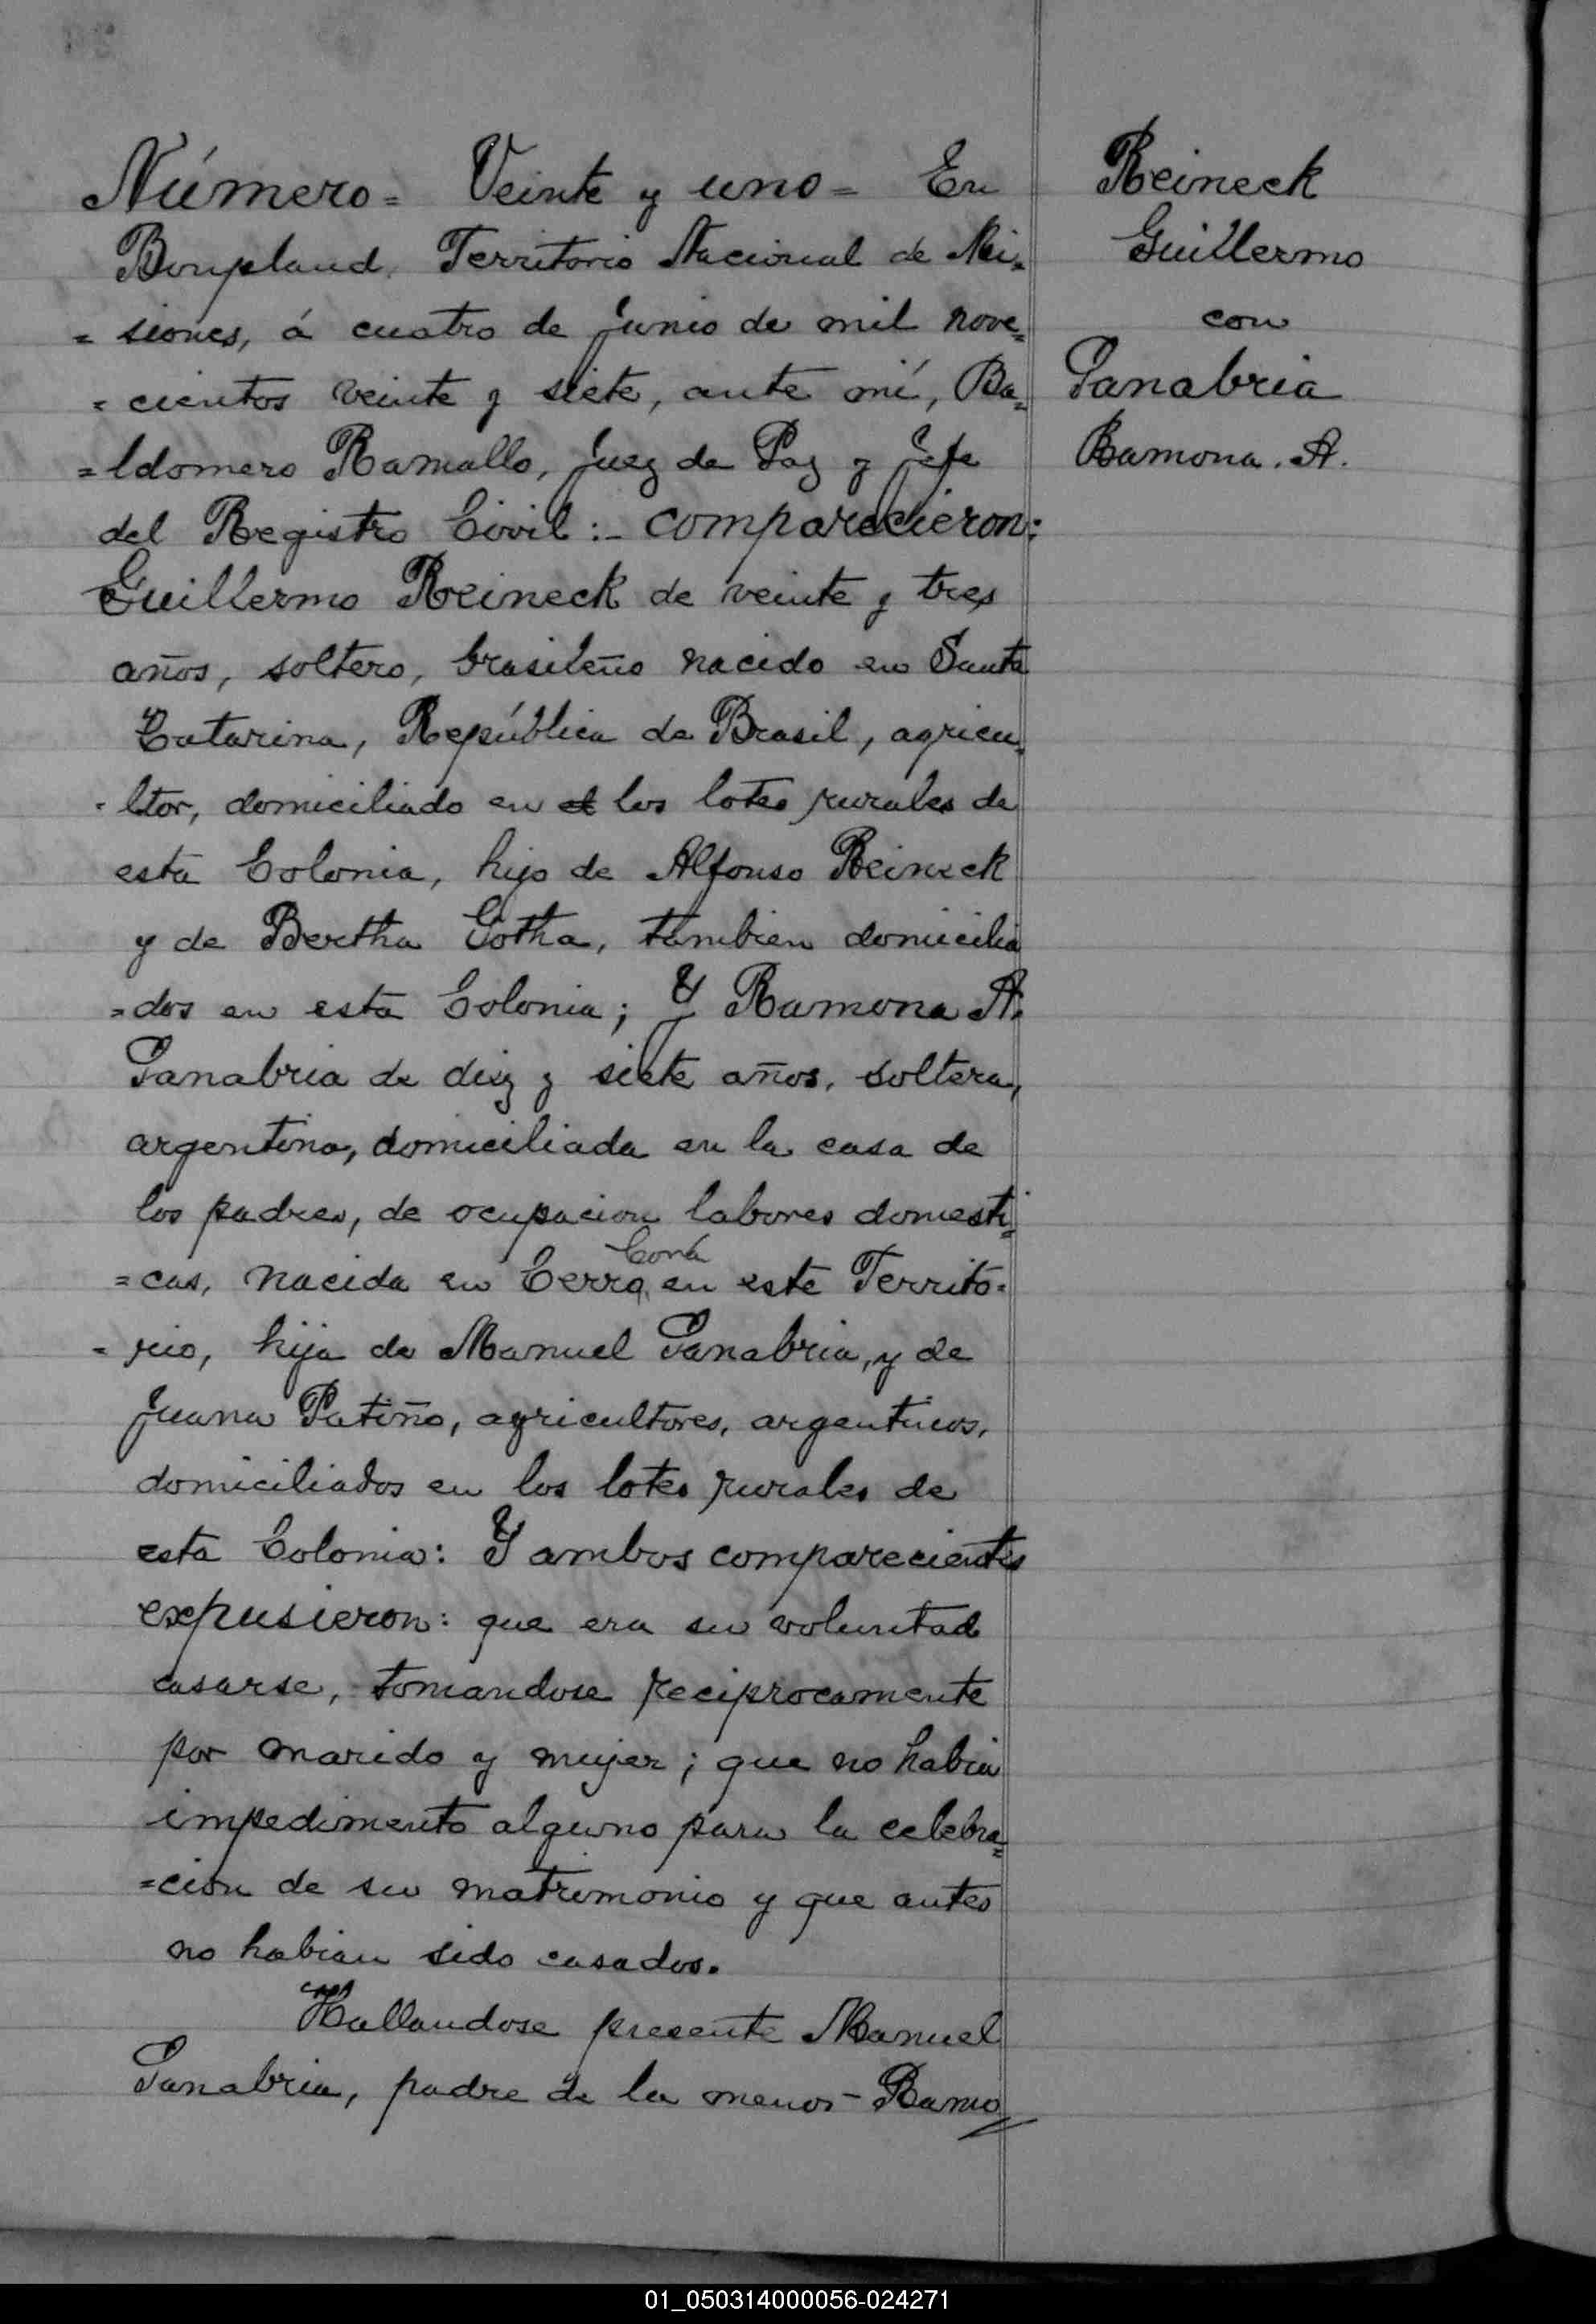 Número = Veinte y uno = En
Bonpland, Territorio Nacional de Mi=
= siones, á cuatro de Junio de mil nove=
= cientos veinte y siete, ante mí, Ba=
= ldomero Ramallo, Juez de Paz y Jefe
del Registro Civil :- comparecieron:
Guillermo Reineck de veinte y tres
años, soltero, brasileño nacido en Santa
Catarina, República de Brasil, agricu=
- ltor, domiciliado en los lotes rurales de
esta Colonia, hijo de Alfonso Reineck
y de Bertha Gotha, tambien domicilia
= dos en esta Colonia; Y Ramona A.
Sanabria de diez y siete años, soltera,
argentina, domiciliada en la casa de
los padres, de ocupacion labores domesti=
= cas, nacida en Cerro Corá en este Territo=
= rio, hija de Manuel Sanabria, y de
Juana Patiño, agricultores, argentinos,
domiciliados en los lotes rurales de
esta Colonia: Y ambos comparecientes
expusieron: que era su voluntad
casarse, tomandose reciprocamente
por marido y mujer; que no habia
impedimento alguno para la celebra=
= cion de su matrimonio y que antes
no habian sido casados.
Hallandose presente Manuel
Sanabria, padre de la menor - Ramo
Reineck
Guillermo
con
Sanabria
Ramona. A.
01_050314000056-024271